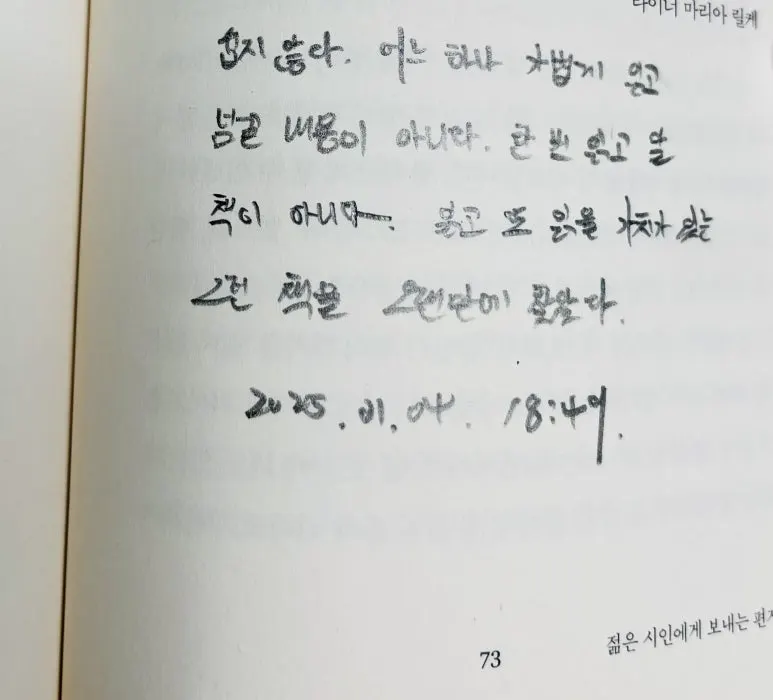 라이너 마리아 릴케
쉽지 않다. 어느 하나 가볍게 읽고
넘길 내용이 아니다. 한 번 읽고 말
책이 아니다. 읽고 또 읽을 가치가 있는
그런 책을 오랜만에 만났다.
2025. 01. 04. 18:49.
젊은 시인에게 보내는 편지
73